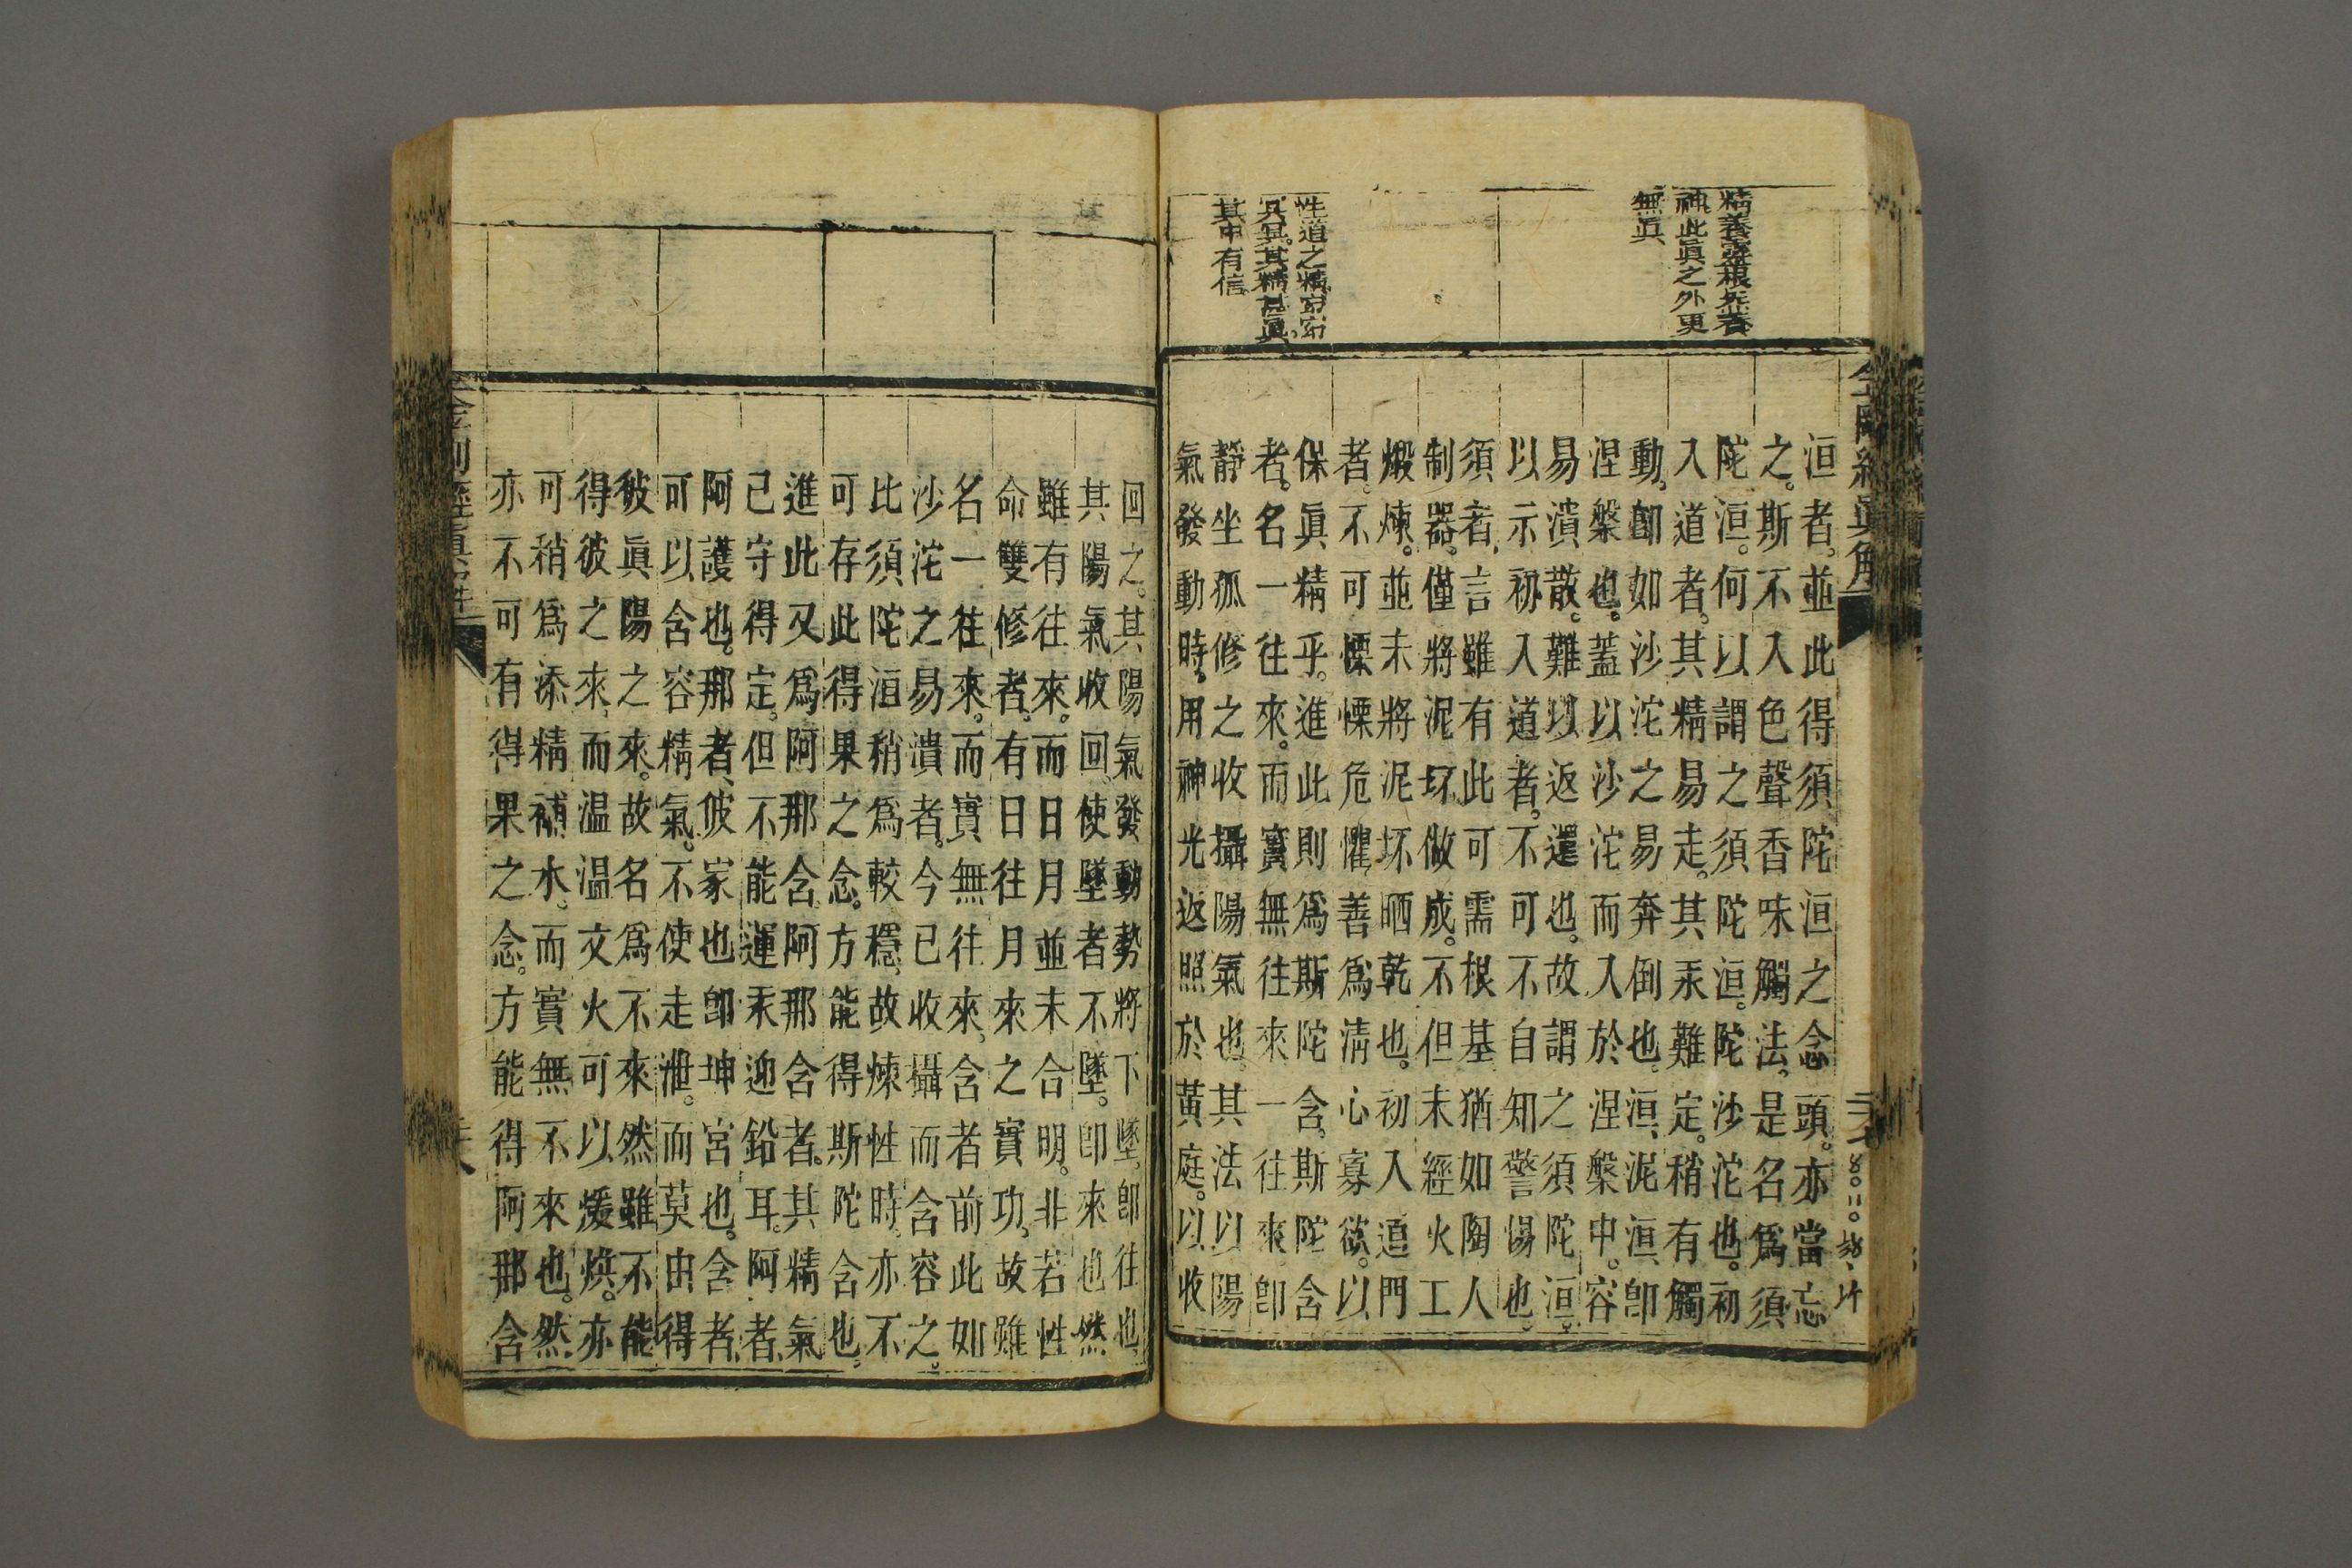 精養靈根炁養
神此眞之外更
無眞
性道之精窈窈
冥冥。其精甚眞。
其中有信
洹者。並此得須陀洹之念頭。亦當忘
之。斯不入色聲香味觸法。是名爲須
陀洹。何以謂之須陀洹。陀沙沱也。初
入道者。其精易走。其汞難定。稍有觸
動。卽如沙沱之易奔倒也。洹泥洹。卽
涅槃也。蓋以沙沱而入於涅槃中。容
易潰散。難以返還也。故謂之須陀洹。
以示初入道者。不可不自知警惕也。
須者。言雖有此可需根基猶如陶人
制器。僅將泥坏做成。不但未經火工
煅煉。並未將泥坏晒乾也。初入道門
者。不可慄慄危懼善爲淸心寡欲。以
保眞精乎。進此則爲斯陀含。斯陀含
者。名一往來。而實無往來一往來卽
靜坐孤修之收攝陽氣也。其法以陽
氣發動時。用神光返照於黃庭。以收
金剛經眞解
回之。其陽氣發動勢將下墜。卽往也。
其陽氣收回。使墜者不墜。卽來也然
雖有往來。而日月並未合明。非若性
命雙修者。有日往月來之實功。故雖
名一往來。而實無往來。含者前此如
沙沱之易潰者。今已收攝而含容之。
比須陀洹稍爲較穩。故煉性時。亦不
可存此得果之念。方能得斯陀含也。
進此又爲阿那含。阿那含者。其精氣
已守得定。但不能運汞迎鉛耳。阿者、
阿護也。那者、彼家也卽坤宮也。含者、
可以含容精氣。不使走泄。而莫由得
彼眞陽之來。故名爲不來然雖不能
得彼之來、而温温文火可以煖煥。亦
可稍爲添精補水。而實無不來也。然
亦不可有得果之念。方能得阿那含